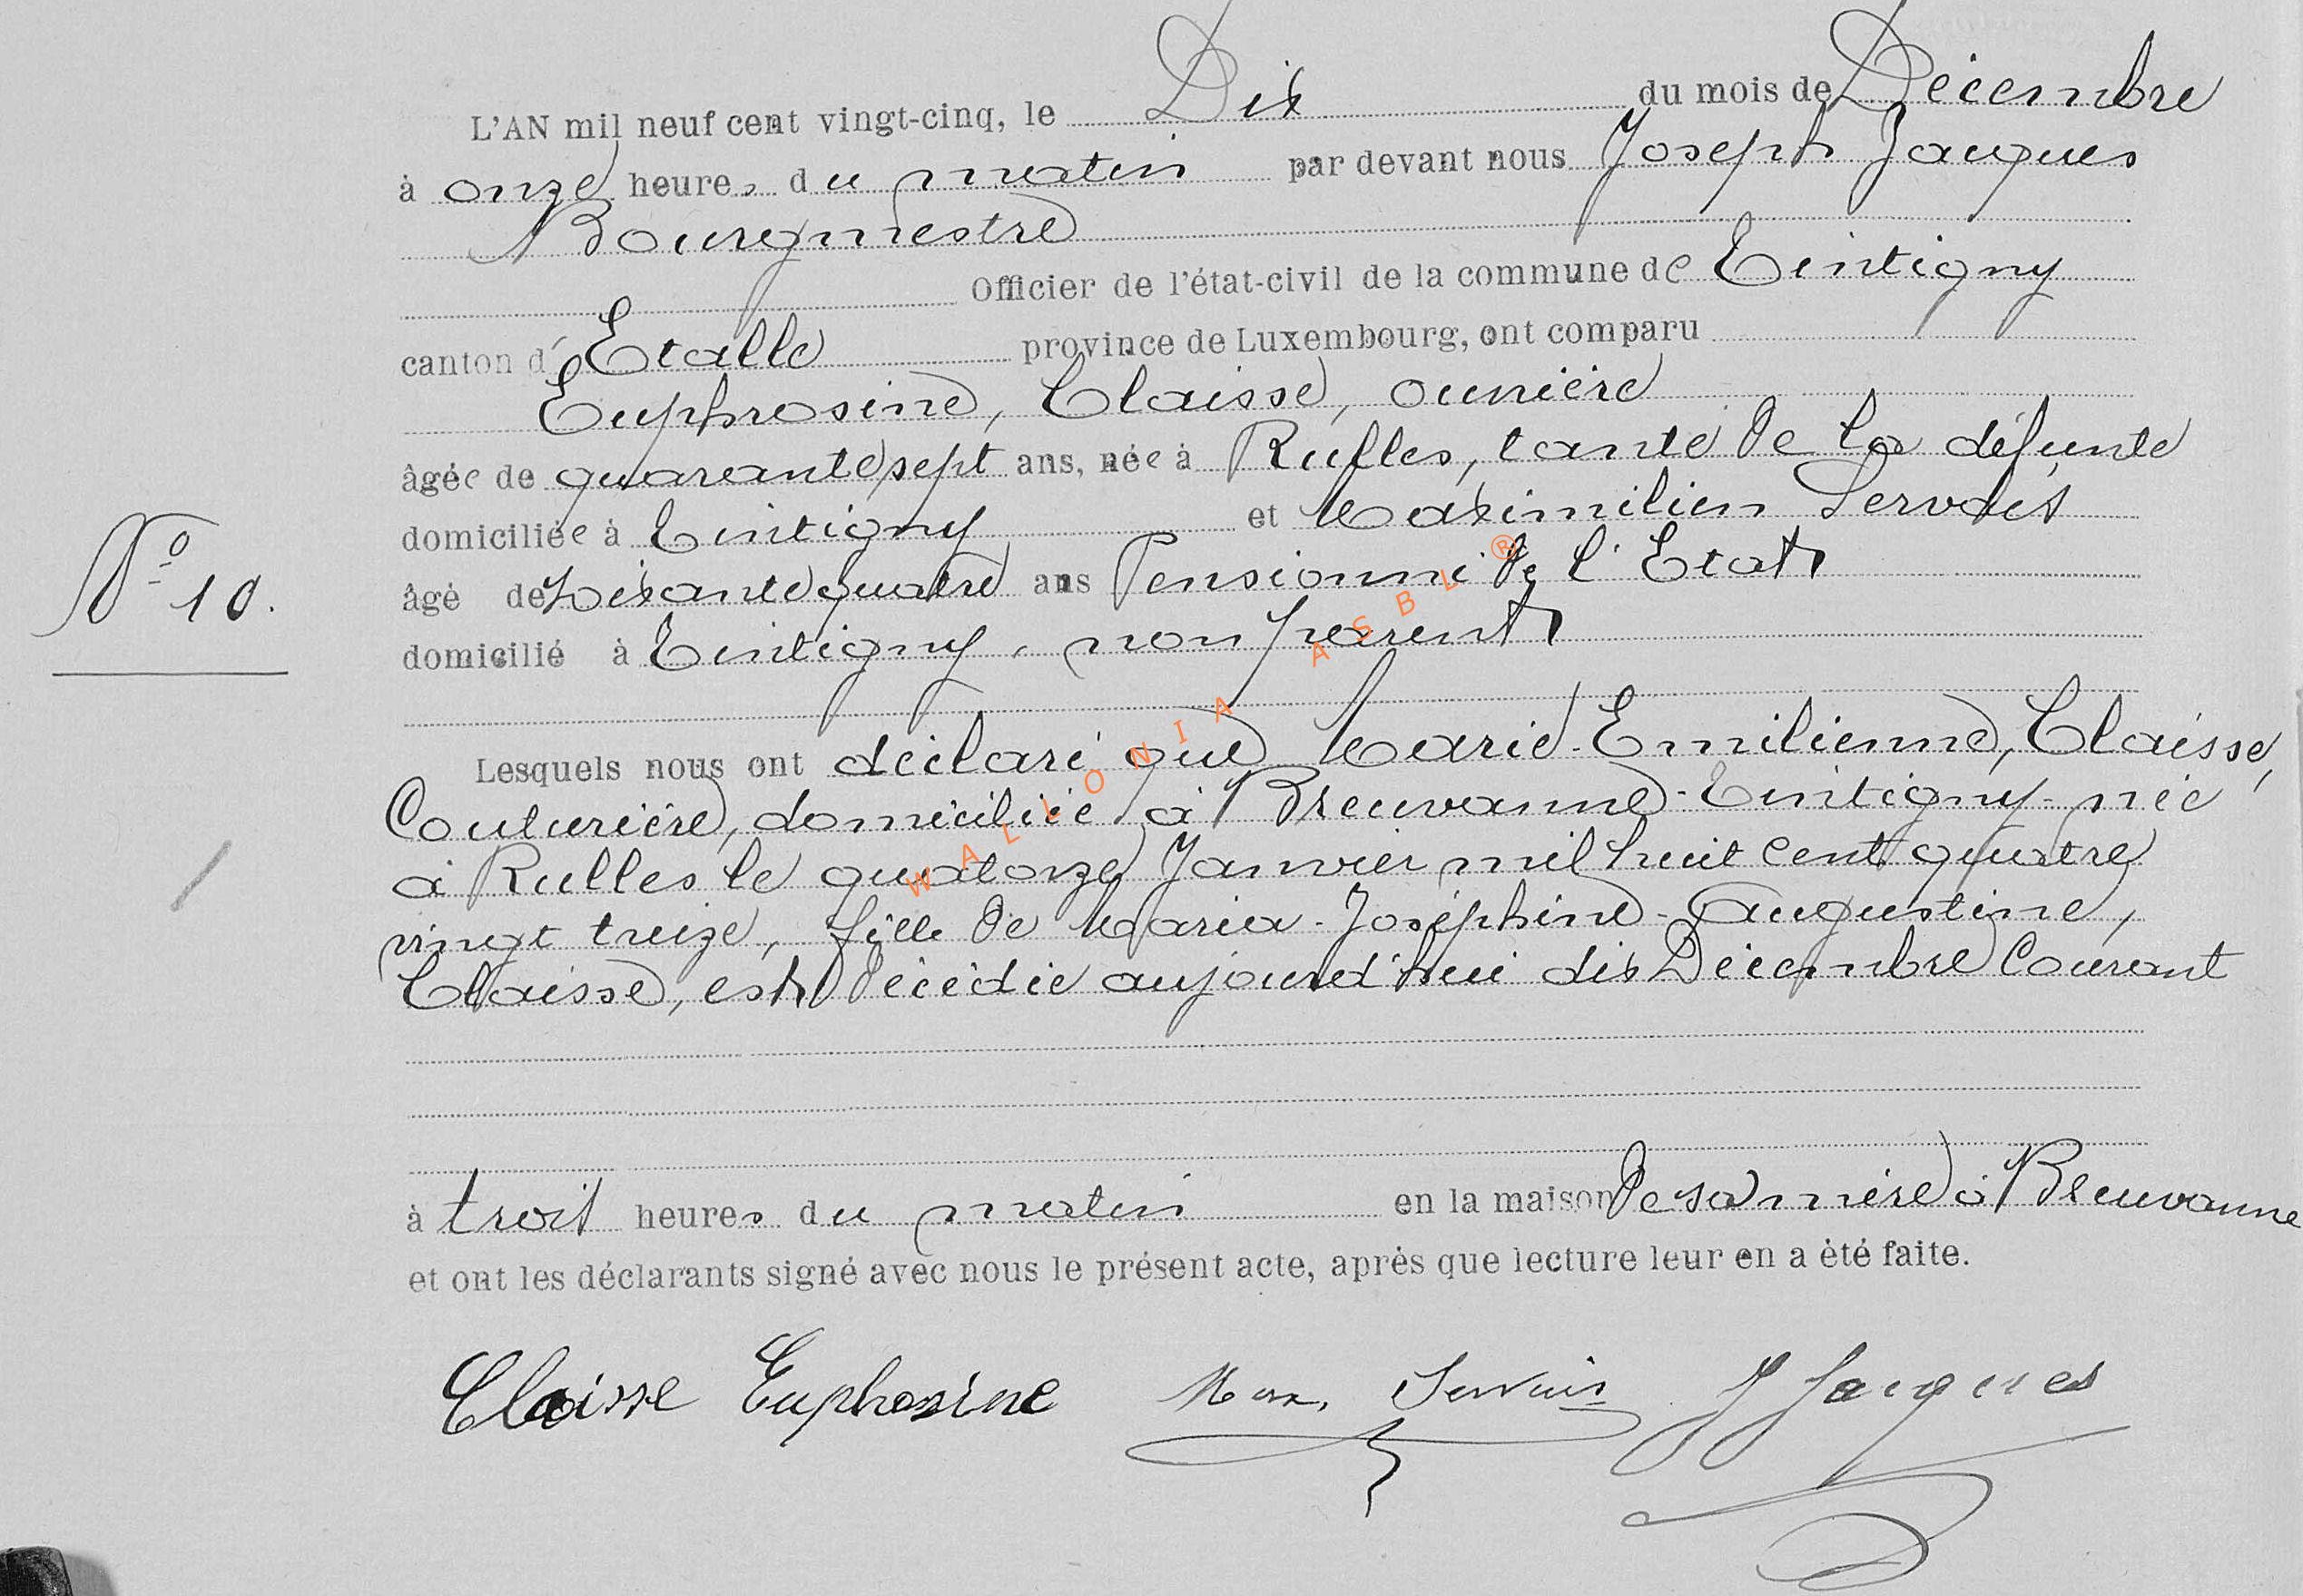 L'AN mil neuf cent vingt-cinq, le Dix du mois de Décembre
à onze heures du matin par devant nous Joseph Jacques
Bourgmestre
Officier de l'état-civil de la commune de Tintigny
canton d'Etalle province de Luxembourg, ont comparu
Euphrosine, Claisse, ouvrière
âgée de quarante sept ans, née à Rulles, tante de la défunte
domiciliée à Tintigny et Maximilien Servais
N° 10.
âgé de soixante quatre ans Pensionné de l'Etat
domicilié à Tintigny, non parent
Lesquels nous ont déclaré que Marie-Emilienne, Claisse,
Couturière, domiciliée à Breuvanne-Tintigny-née
à Rulles le quatorze Janvier mil huit cent quatre
vingt treize, fille de Maria-Joséphine-Augustine,
Claisse, est décédée aujourd'hui dix Décembre Courant
à trois heures du matin en la maison de sa mère à Breuvanne
et ont les déclarants signé avec nous le présent acte, après que lecture leur en a été faite.
Claisse Euphrosine Max. Servais J Jacques
WALLONIA ASBL ®